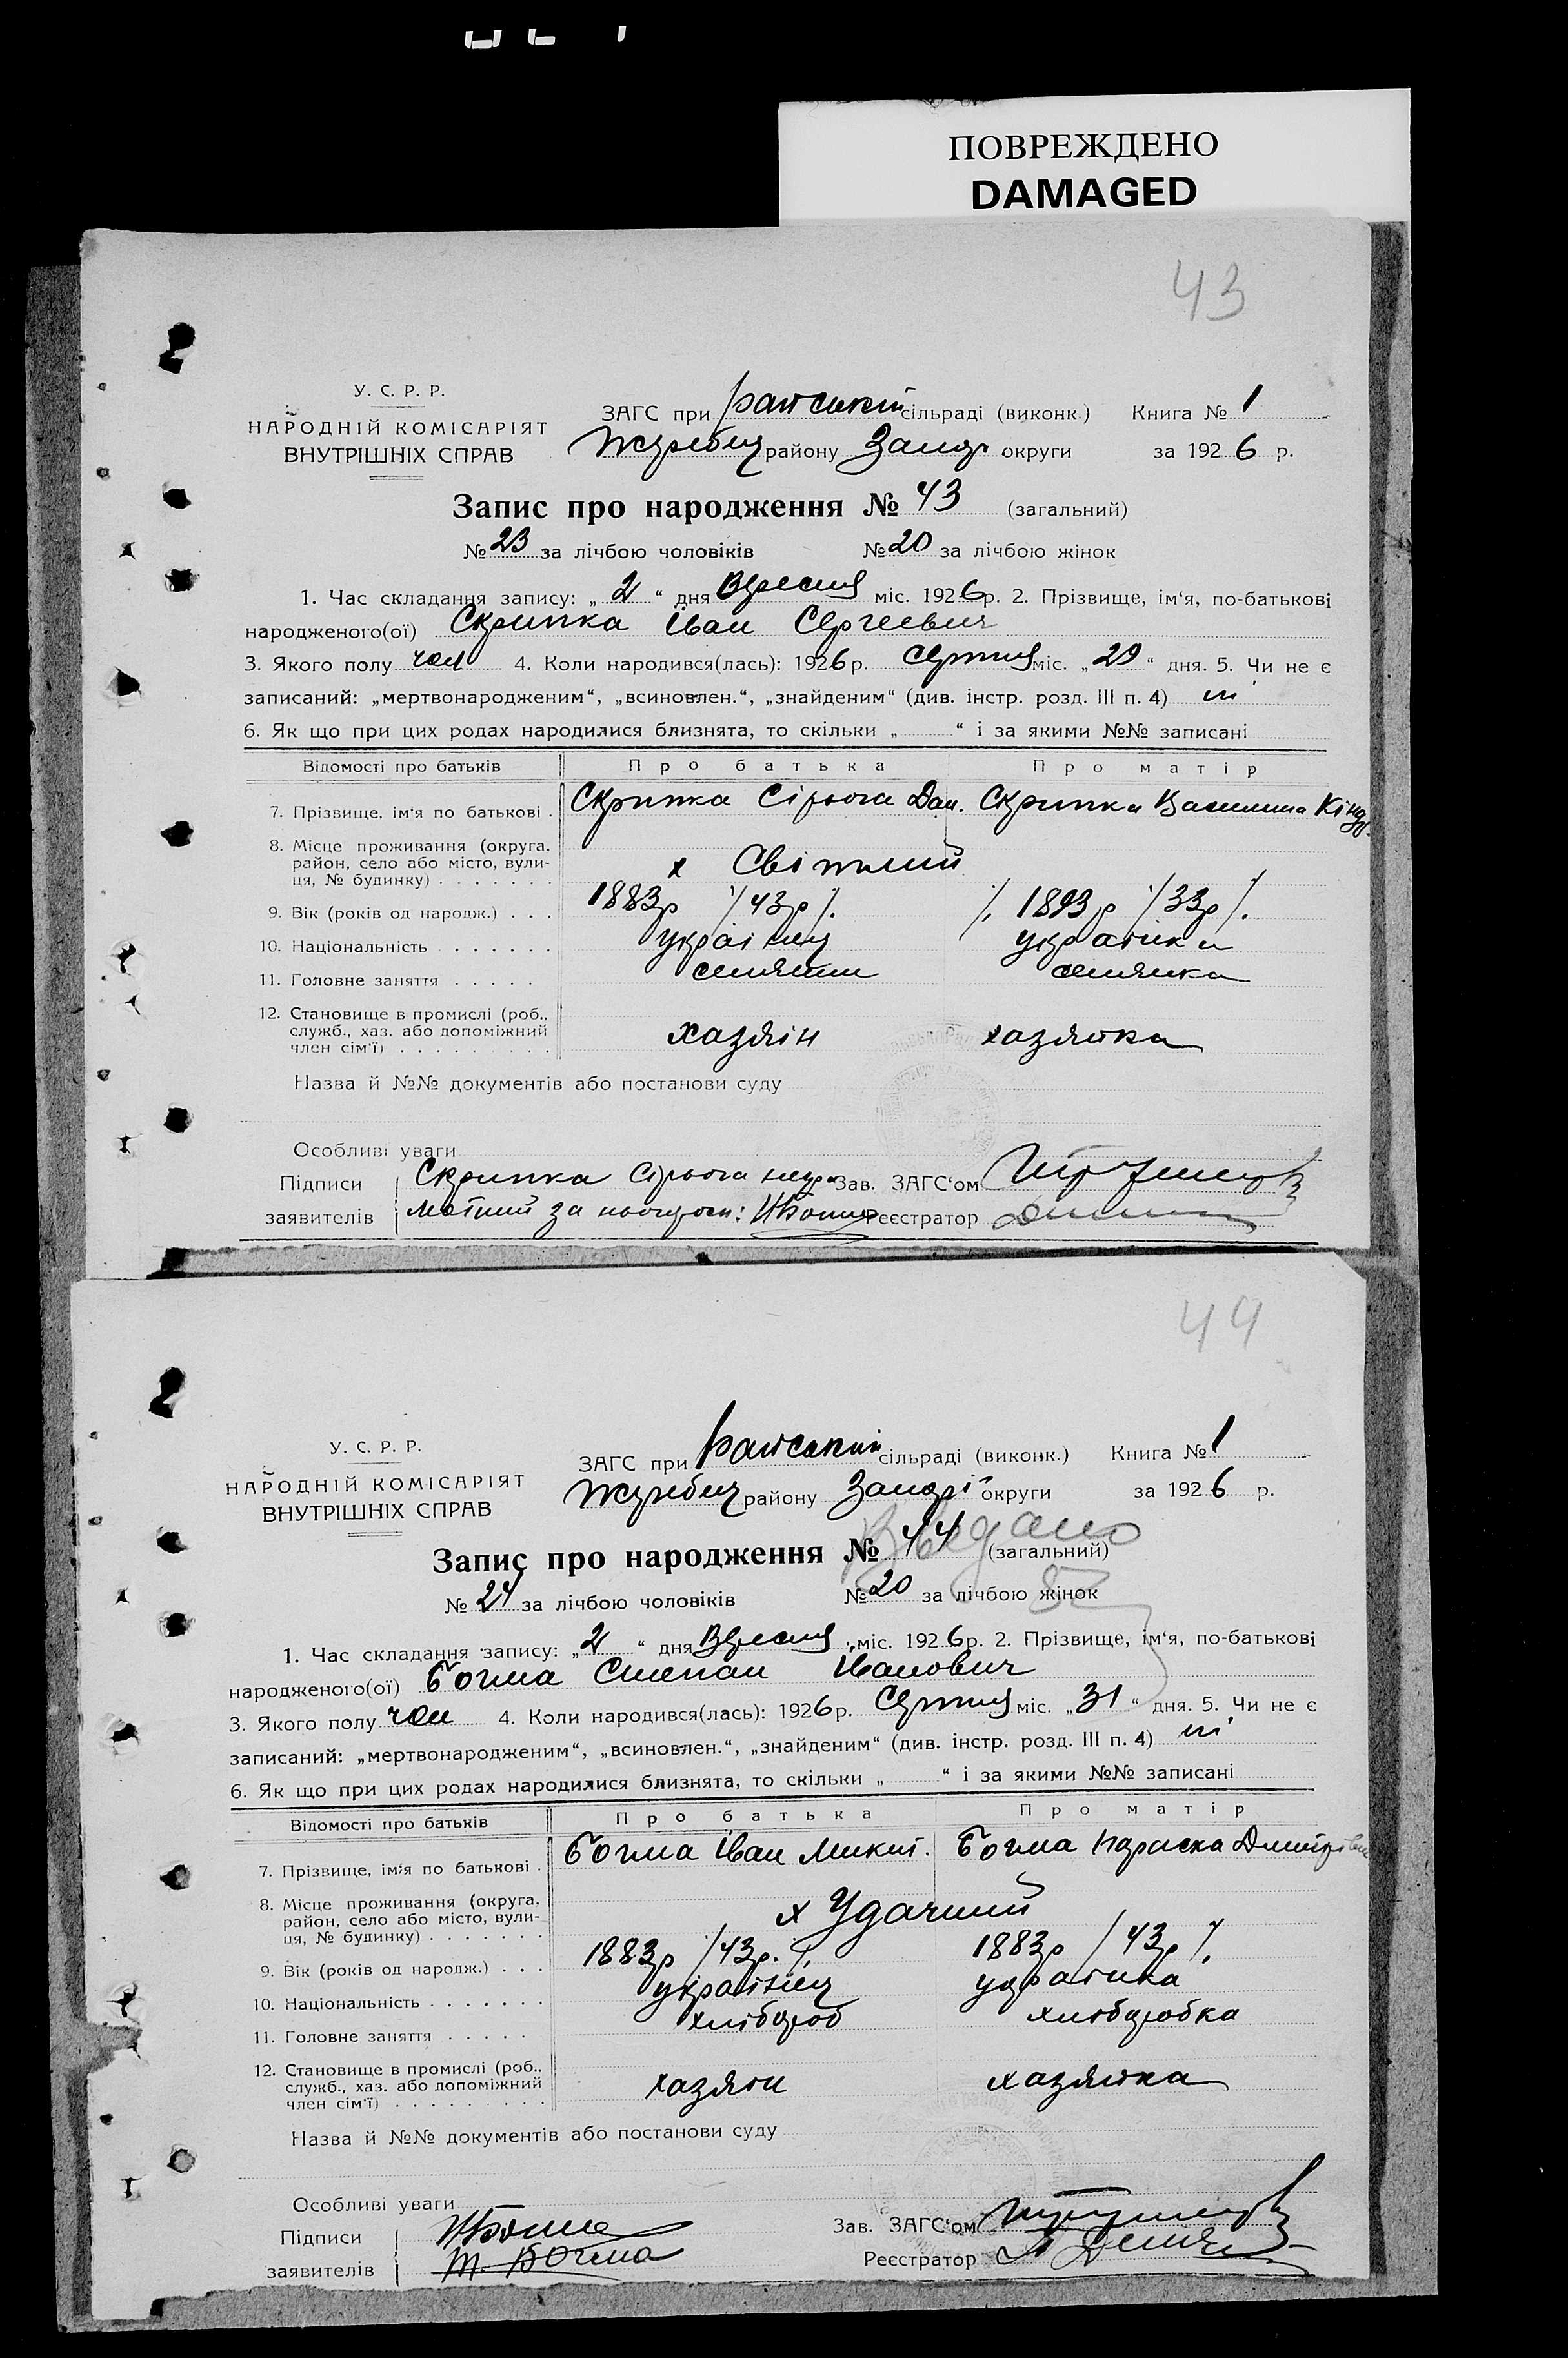 ПОВРЕЖДЕНО
DAMAGED
43
У. С. Р. Р.
НАРОДНІЙ КОМІСАРІЯТ
ВНУТРІШНІХ СПРАВ
ЗАГС при Райській сільраді (виконк.) Книга № 1
Жеребец району Запор округи за 1926 р.
Запис про народження № 43 (загальний)
№ 23 за лічбою чоловіків № 20 за лічбою жінок
1. Час складання запису: „2“ дня Вересня міс. 1926 р. 2. Прізвище, ім‘я, по-батькові
народженого(ої) Скрипка Іван Сергеевич
3. Якого полу чол 4. Коли народився(лась): 1926 р. Серпня міс. „29“ дня. 5. Чи не є
записаний: „мертвонародженим“, „всиновлен.“, „знайденим“ (див. інстр. розд. III п. 4) ні
6. Як що при цих родах народилися близнята, то скільки „ “ і за якими №№ записані
Відомості про батьків Про батька Про матір
7. Прізвище, ім‘я по батькові . Скрипка Сірьога Дан. Скрипка Василина Кінд
8. Місце проживання (округа, район, село або місто, вулиця, № будинку) х Світлий
9. Вік (років од народж.) . . . 1883р /43р/. /. 1893р /33р/.
10. Національність українец украінка
11. Головне заняття селянин селянка
12. Становище в промислі (роб., служб., хаз. або допоміжний член сім‘ї) хазяін хазяйка
Назва й №№ документів або постанови суду
Особливі уваги
Підписи Скрипка Сірьога Зав. ЗАГС‘ом
заявителів за Реєстратор
44
У. С. Р. Р.
НАРОДНІЙ КОМІСАРІЯТ
ВНУТРІШНІХ СПРАВ
ЗАГС при Райській сільраді (виконк.) Книга № 1
Жеребец району Запорі округи за 1926 р.
Запис про народження № 44 (загальний)
№ 24 за лічбою чоловіків № 20 за лічбою жінок
1. Час складання запису: „2“ дня Вересня міс. 1926 р. 2. Прізвище, ім‘я, по-батькові
народженого(ої) Богма Степан Іванович
3. Якого полу чол 4. Коли народився(лась): 1926 р. Серпня міс. „31“ дня. 5. Чи не є
записаний: „мертвонародженим“, „всиновлен.“, „знайденим“ (див. інстр. розд. III п. 4) ні
6. Як що при цих родах народилися близнята, то скільки „ “ і за якими №№ записані
Відомості про батьків Про батька Про матір
7. Прізвище, ім‘я по батькові . Богма Іван Микит. Богма Параска Дмитрівн
8. Місце проживання (округа, район, село або місто, вулиця, № будинку) х Удачний
9. Вік (років од народж.) . . . 1883р /43р./. 1883р /43р/.
10. Національність українец українка
11. Головне заняття хлібороб хліборобка
12. Становище в промислі (роб., служб., хаз. або допоміжний член сім‘ї) хазяін хазяйка
Назва й №№ документів або постанови суду
Особливі уваги
Підписи Зав. ЗАГС‘ом
заявителів Богма Реєстратор